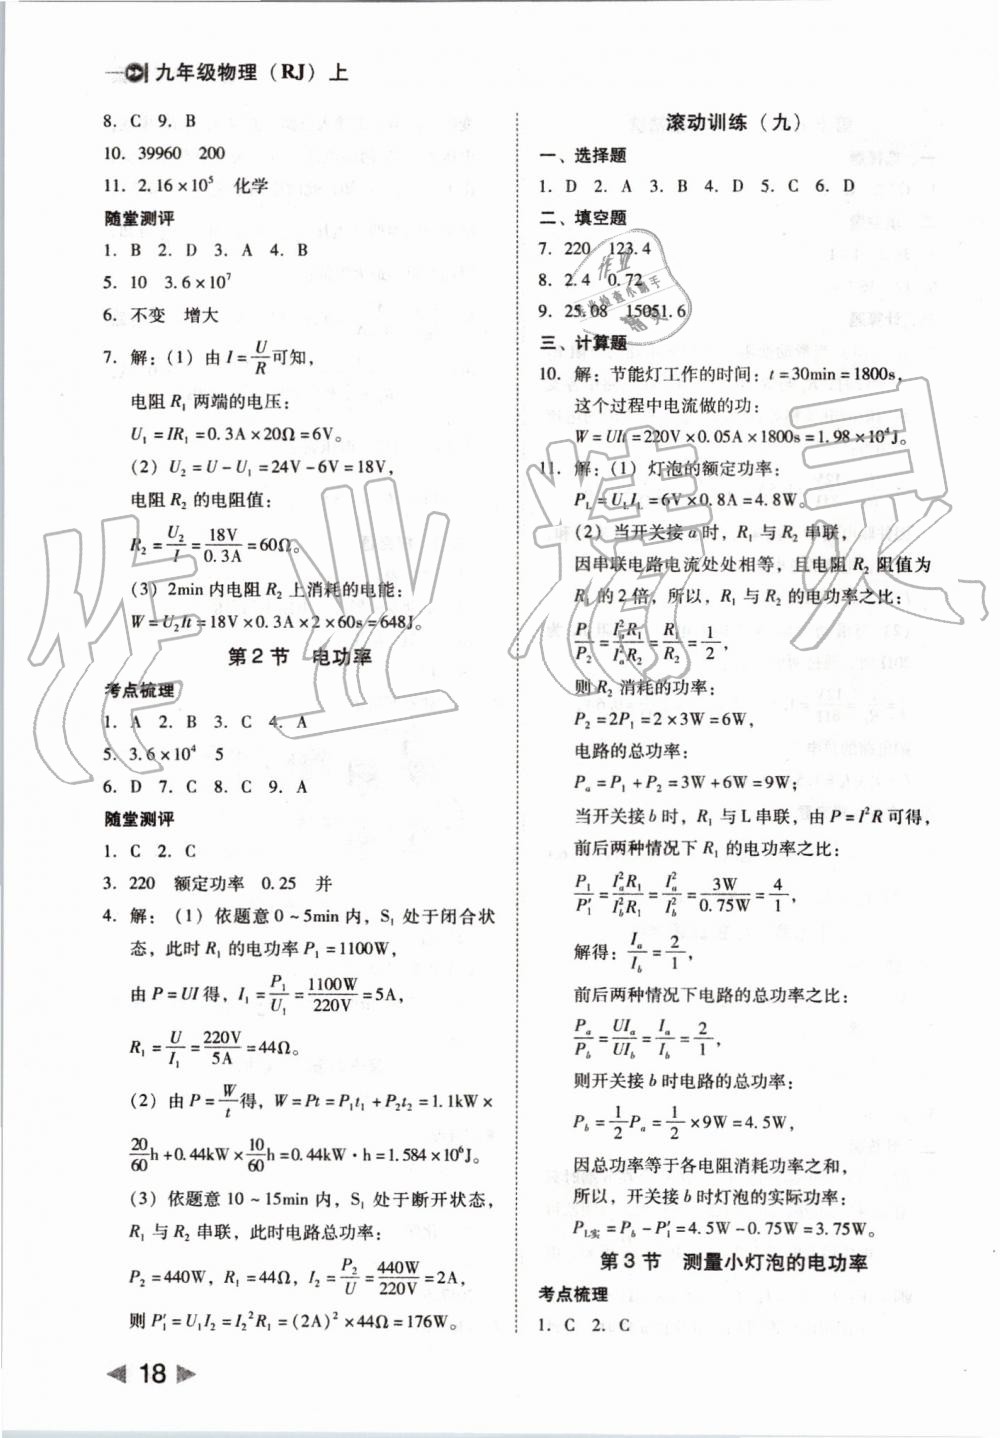 九年级物理（RJ）上
8. C 9. B
10. 39960 200
11. 2.16×10⁵ 化学
随堂测评
1. B 2. D 3. A 4. B
5. 10 3.6×10⁷
6. 不变 增大
7. 解：(1) 由 I=U/R可知，
电阻 R₁ 两端的电压：
U₁=IR₁=0.3A×20Ω=6V。
(2) U₂=U-U₁=24V-6V=18V，
电阻 R₂ 的电阻值：
R₂=U₂/I=18V/0.3A=60Ω。
(3) 2min内电阻 R₂ 上消耗的电能：
W=U₂It=18V×0.3A×2×60s=648J。
第2节 电功率
考点梳理
1. A 2. B 3. C 4. A
5. 3.6×10⁴ 5
6. D 7. C 8. C 9. A
随堂测评
1. C 2. C
3. 220 额定功率 0.25 并
4. 解：(1) 依题意0～5min内，S₁处于闭合状
态，此时 R₁ 的电功率 P₁=1100W，
由 P=UI得，I₁=P₁/U₁=1100W/220V=5A，
R₁=U/I₁=220V/5A=44Ω。
(2) 由 P=W/t得，W=Pt=P₁t₁+P₂t₂=1.1kW×
20/60h+0.44kW×10/60h=0.44kW·h=1.584×10⁶J。
(3) 依题意 10～15min内，S₁处于断开状态，
R₁ 与 R₂ 串联，此时电路总功率：
P₂=440W，R₁=44Ω，I₂=P₂/U=440W/220V=2A，
则 P₁′=U₁I₂=I₂²R₁=(2A)²×44Ω=176W。
18
滚动训练（九）
一、选择题
1. D 2. A 3. B 4. D 5. C 6. D
二、填空题
7. 220 123.4
8. 2.4 0.72
9. 25.08 15051.6
三、计算题
10. 解：节能灯工作的时间：t=30min=1800s，
这个过程中电流做的功：
W=UIt=220V×0.05A×1800s=1.98×10⁴J。
11. 解：(1) 灯泡的额定功率：
P_L=U_LI_L=6V×0.8A=4.8W。
(2) 当开关接 a 时，R₁ 与 R₂ 串联，
因串联电路电流处处相等，且电阻 R₂ 阻值为
R₁ 的 2 倍，所以，R₁ 与 R₂ 的电功率之比：
P₁/P₂=Iₐ²R₁/Iₐ²R₂=R₁/R₂=1/2，
则 R₂ 消耗的功率：
P₂=2P₁=2×3W=6W，
电路的总功率：
Pₐ=P₁+P₂=3W+6W=9W；
当开关接 b 时，R₁ 与 L 串联，由 P=I²R 可得，
前后两种情况下 R₁ 的电功率之比：
P₁/P₁′=Iₐ²R₁/I_b²R₁=Iₐ²/I_b²=3W/0.75W=4/1，
解得：Iₐ/I_b=2/1，
前后两种情况下电路的总功率之比：
Pₐ/P_b=UIₐ/UI_b=Iₐ/I_b=2/1，
则开关接 b 时电路的总功率：
P_b=1/2Pₐ=1/2×9W=4.5W，
因总功率等于各电阻消耗功率之和，
所以，开关接 b 时灯泡的实际功率：
P_L实=P_b-P₁′=4.5W-0.75W=3.75W。
第3节 测量小灯泡的电功率
考点梳理
1. C 2. C
作业精灵